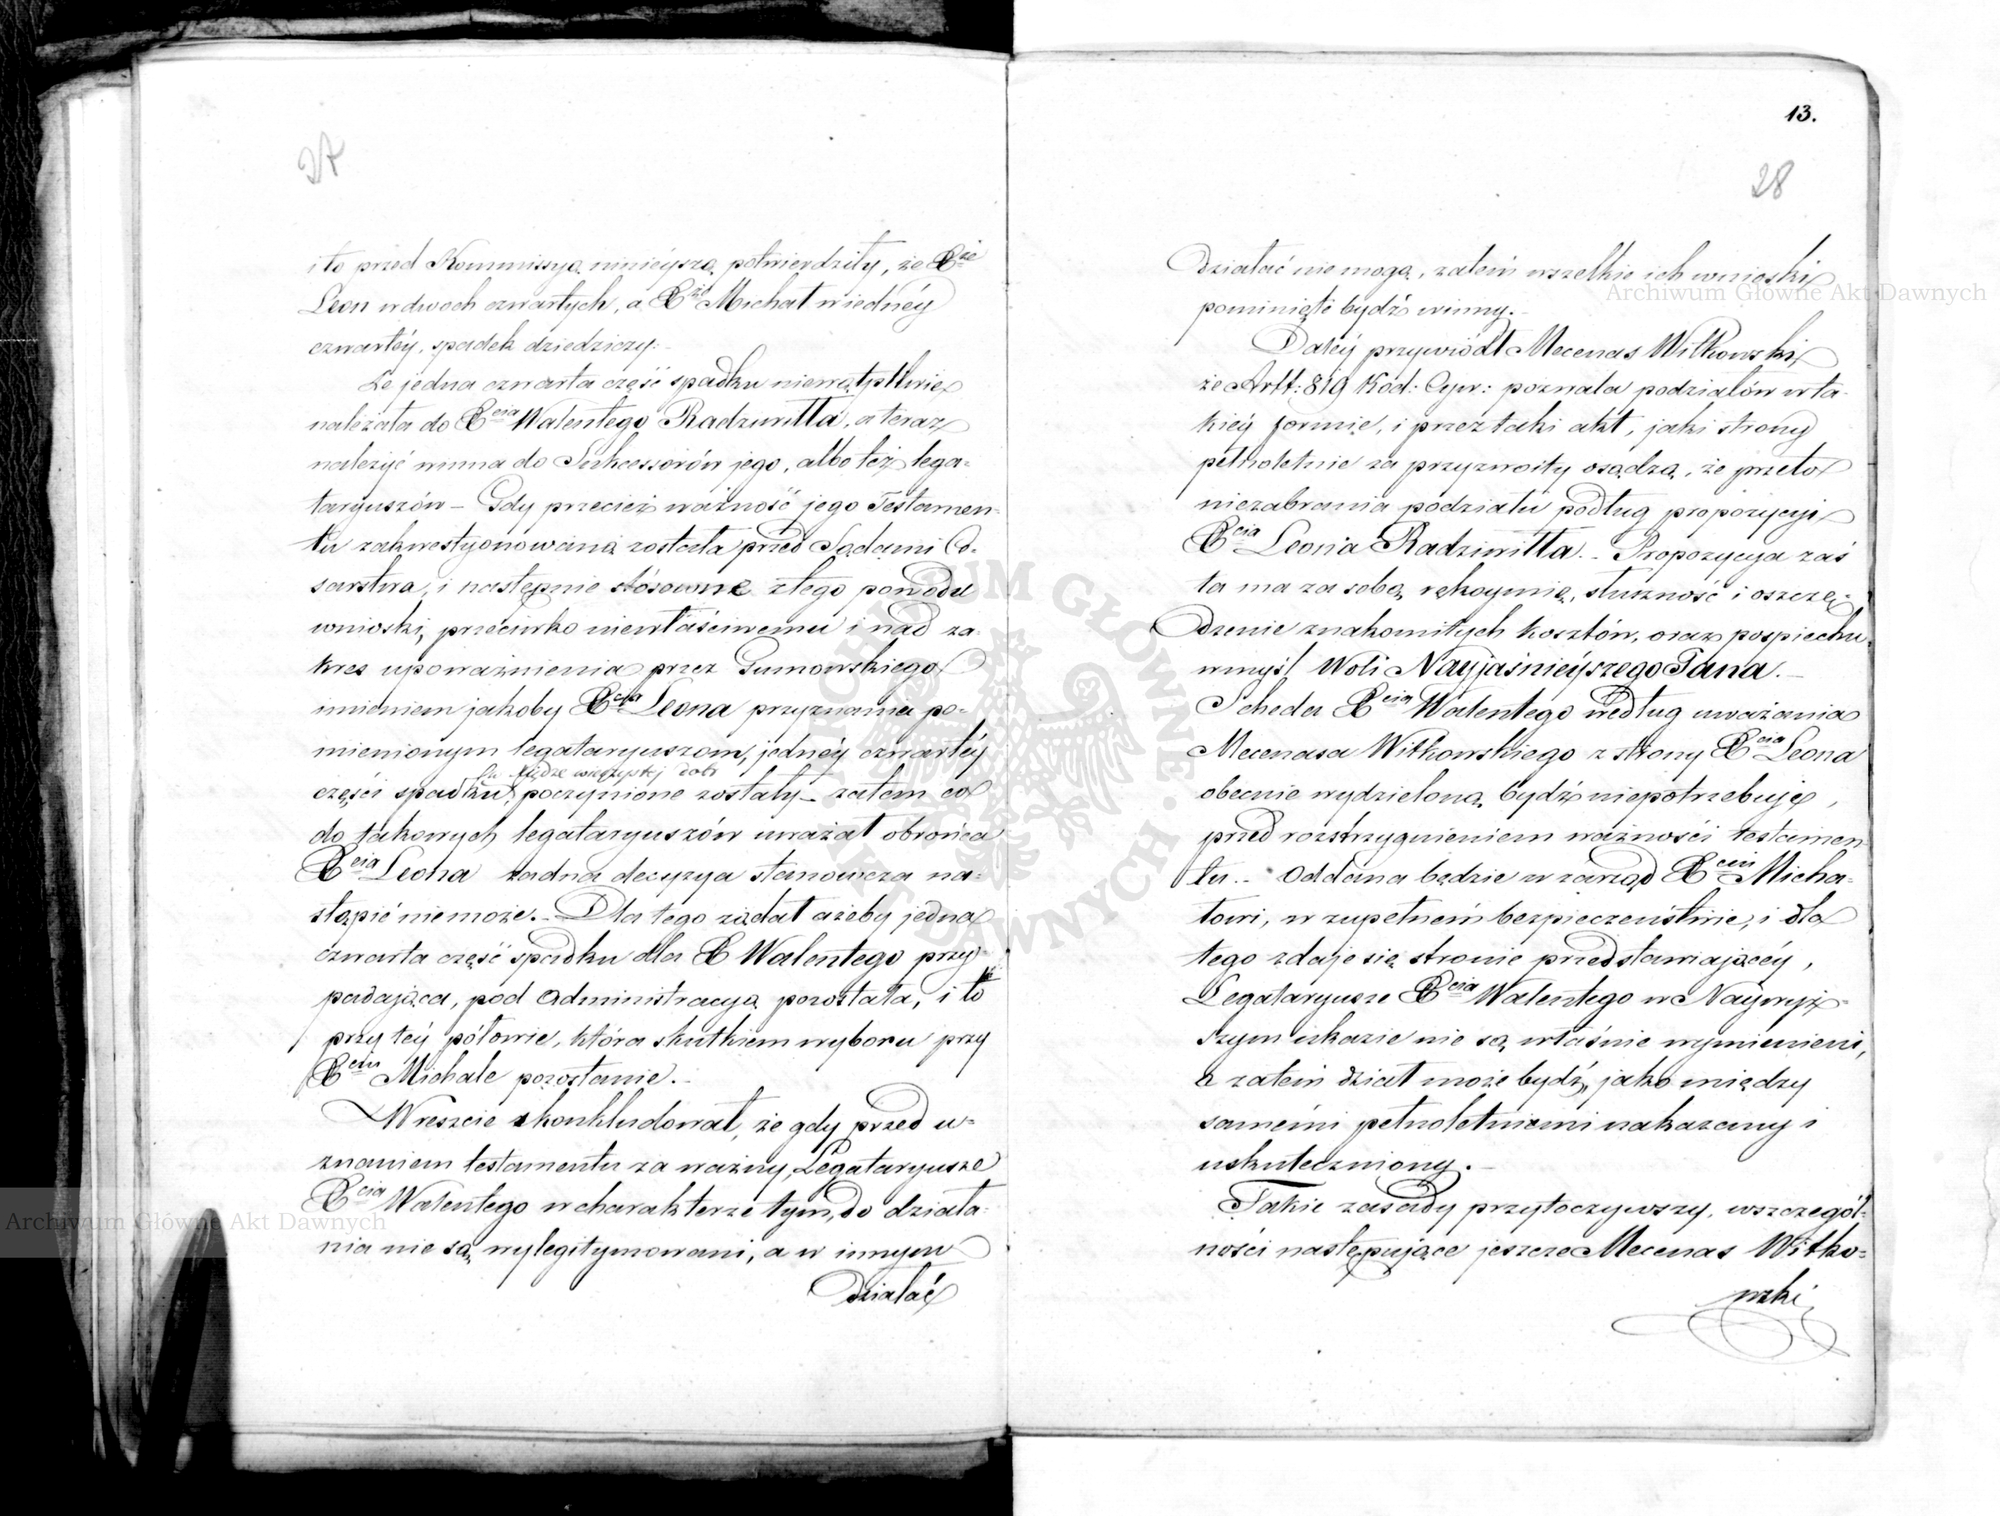 27
i to przed Kommissyą ninieyszą potwierdziły, że Xże
Leon w dwóch czwartych, a Xże Michał w iednéy
czwartéy, spadek dziedziczy.–
Że jedna czwarta część spadku niewątpliwie
należała do Xcia Walentego Radziwiłła, a teraz
należyć winna do Sukcessorów jego, albo też lega=
taryuszów – Gdy przecież ważność jego Testamen=
tu zakwestyonowaną została przed Sądami Ce=
sarstwa, i następnie stósowne z tego powodu
wnioski, przeciwko niewłaściwemu i nad za=
kres upoważnienia przez Gumowskiego
imieniem jakoby Xcia Leona przyznaniu po=
mienionym legataryuszom, jednéy czwartéy
części spadku, poczynione zostały – zatem co
w Xiędze wieczystej dóbr
do takowych legataryuszów uważał obrońca
Xcia Leona żadna decyzya stanowcza na=
stąpić nie może.– Dla tego żądał ażeby jedna
czwarta część spadku dla X Walentego przy=
padająca, pod Administracyą pozostała, i to
przy téy połowie, która skutkiem wyboru przy
Xciu Michale pozostanie.–
Wreszcie skonkludował, że gdy przed u=
znaniem testamentu za ważny, Legataryusze
Xcia Walentego w charakterze tym, do działa=
nia nie są wylegitymowani, a w innym
działać
13.
28
działać nie mogą, zatem wszelkie ich wnioski
pominięte bydź winny.–
Daléy przywiódł Mecenas Witkowski
że Artt: 819 Kod: Cyw: pozwala podziałów w ta=
kiéy formie, i przez taki akt, jaki strony
pełnoletnie za przyzwoity osądzą, że przeto
niezabrania podziału podług propozycyi
Xcia Leona Radziwiłła.– Propozycya zaś
ta ma za sobą rękoymię, słuszność i oszczę=
dzenie znakomitych kosztów, oraz pospiechu
w myśl Woli Nayjaśnieyszego Pana.–
Scheda Xcia Walentego według uważania
Mecenasa Witkowskiego z strony Xcia Leona
obecnie wydzieloną bydź niepotrzebuje,
przed rozstrzygnieniem ważności testamen=
tu.– Oddana będzie w zarząd Xciu Micha=
łowi, w zupełném bezpieczeństwie, i dla
tego zdaje się stronie przedstawiającéy,
Legataryusze Xcia Walentego w Naywyż=
szym ukazie nie są właśnie wymienieni,
a zatém dział może bydź, jako między
samemi pełnoletniemi nakazany i
uskuteczniony.–
Takie zasady przytoczywszy, w szczegól=
ności następujące jeszcze Mecenas Witko=
wski
Archiwum Główne Akt Dawnych
Archiwum Główne Akt Dawnych
ARCHIWUM GŁÓWNE AKT DAWNYCH